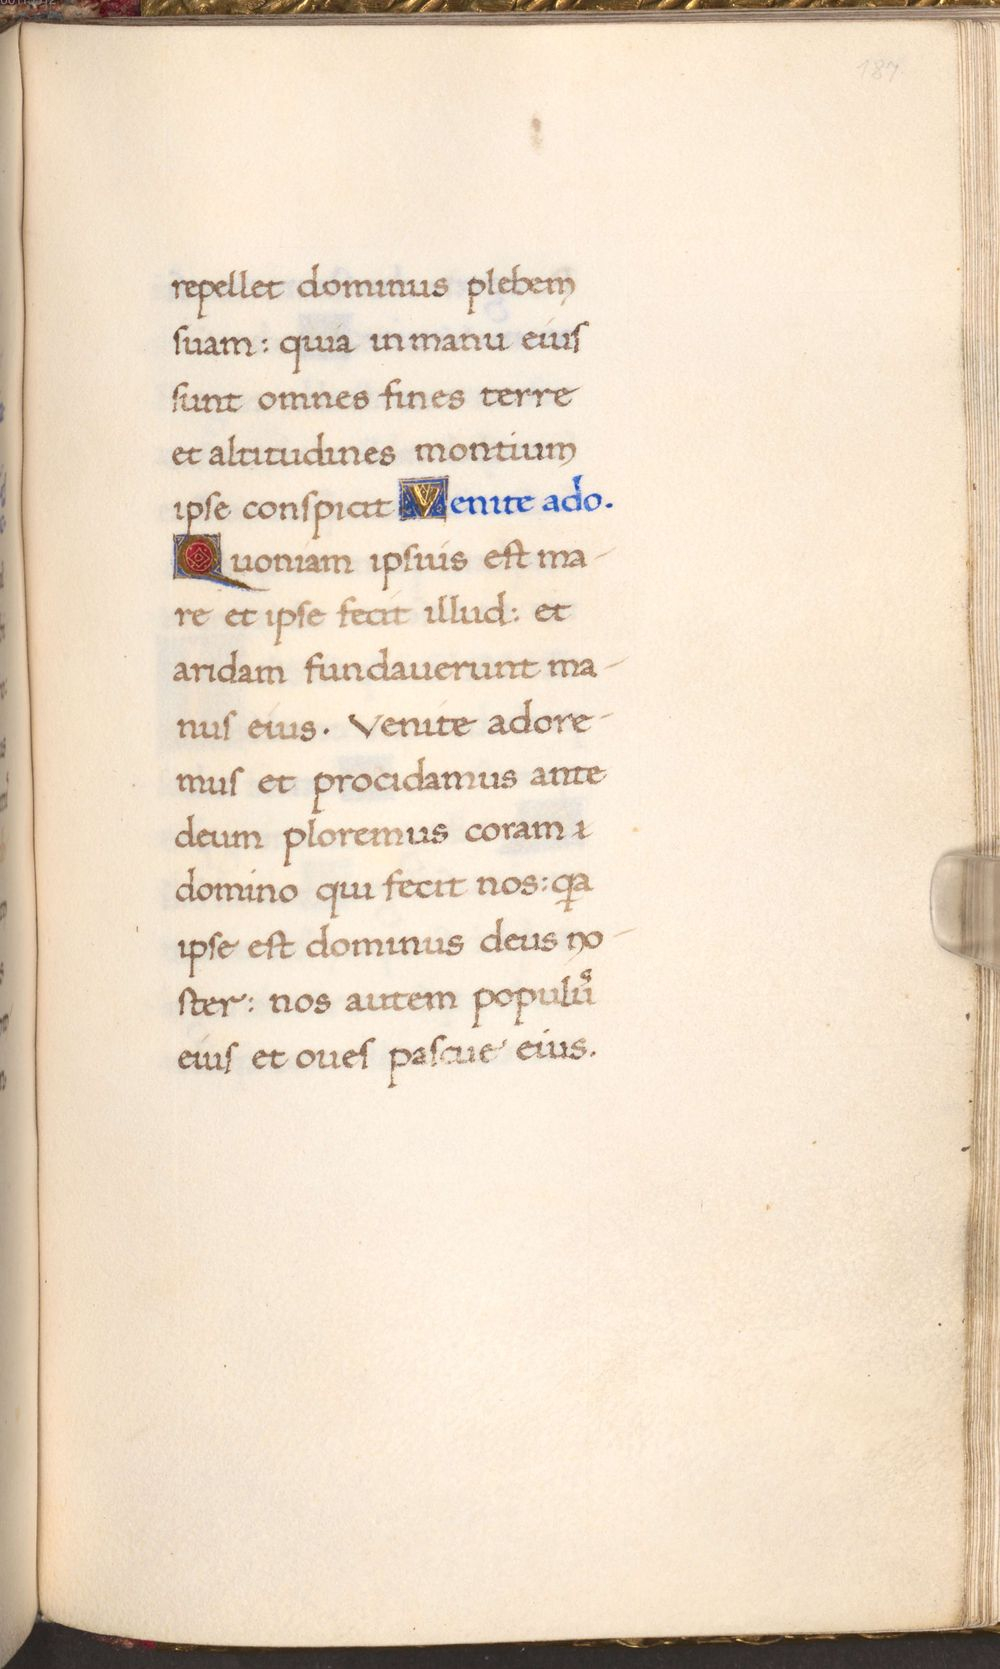 187
repellet dominus plebem
suam: quia in manu eius
sunt omnes fines terre
et altitudines montium
ipse conspicit Venite ado.
Quoniam ipsius est ma-
re et ipse fecit illud: et
aridam fundauerunt ma-
nus eius. Venite adore-
mus et procidamus ante
deum ploremus coram ı
domino qui fecit nos: qa
ipse est dominus deus no-
ster: nos autem populũs
eius et oues pascue eius.